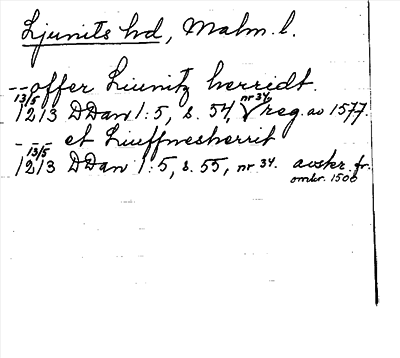 Ljunits hd, Malm. l.
-- offer Liunitz herridt.
13/5 1213 DDan 1:5, s. 54, nr 34, reg. av 1577.
--- et Liuffnesherrit
13/5 1213 DDan 1:5, s. 55, nr 34. avskr. fr. omkr. 1500